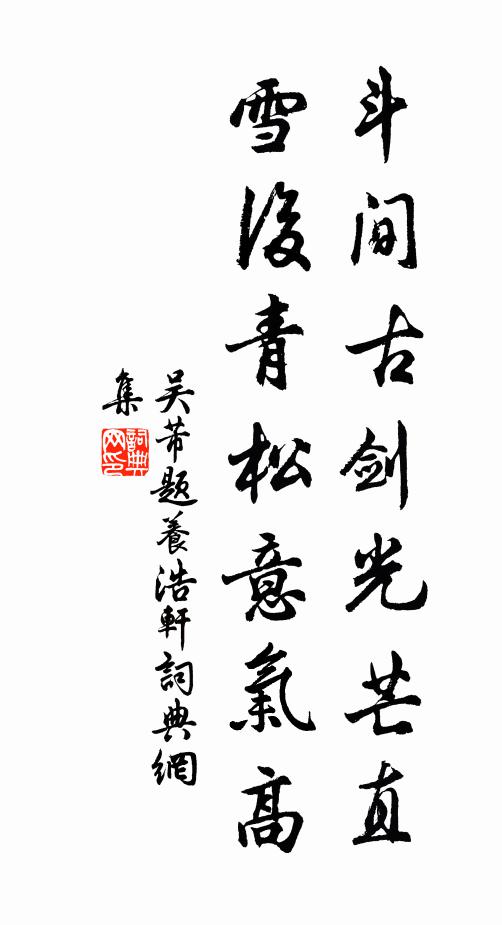 斗间古剑光芒直
雪後青松意氣高
吴芾题養浩軒詞典網
集
詞典网印